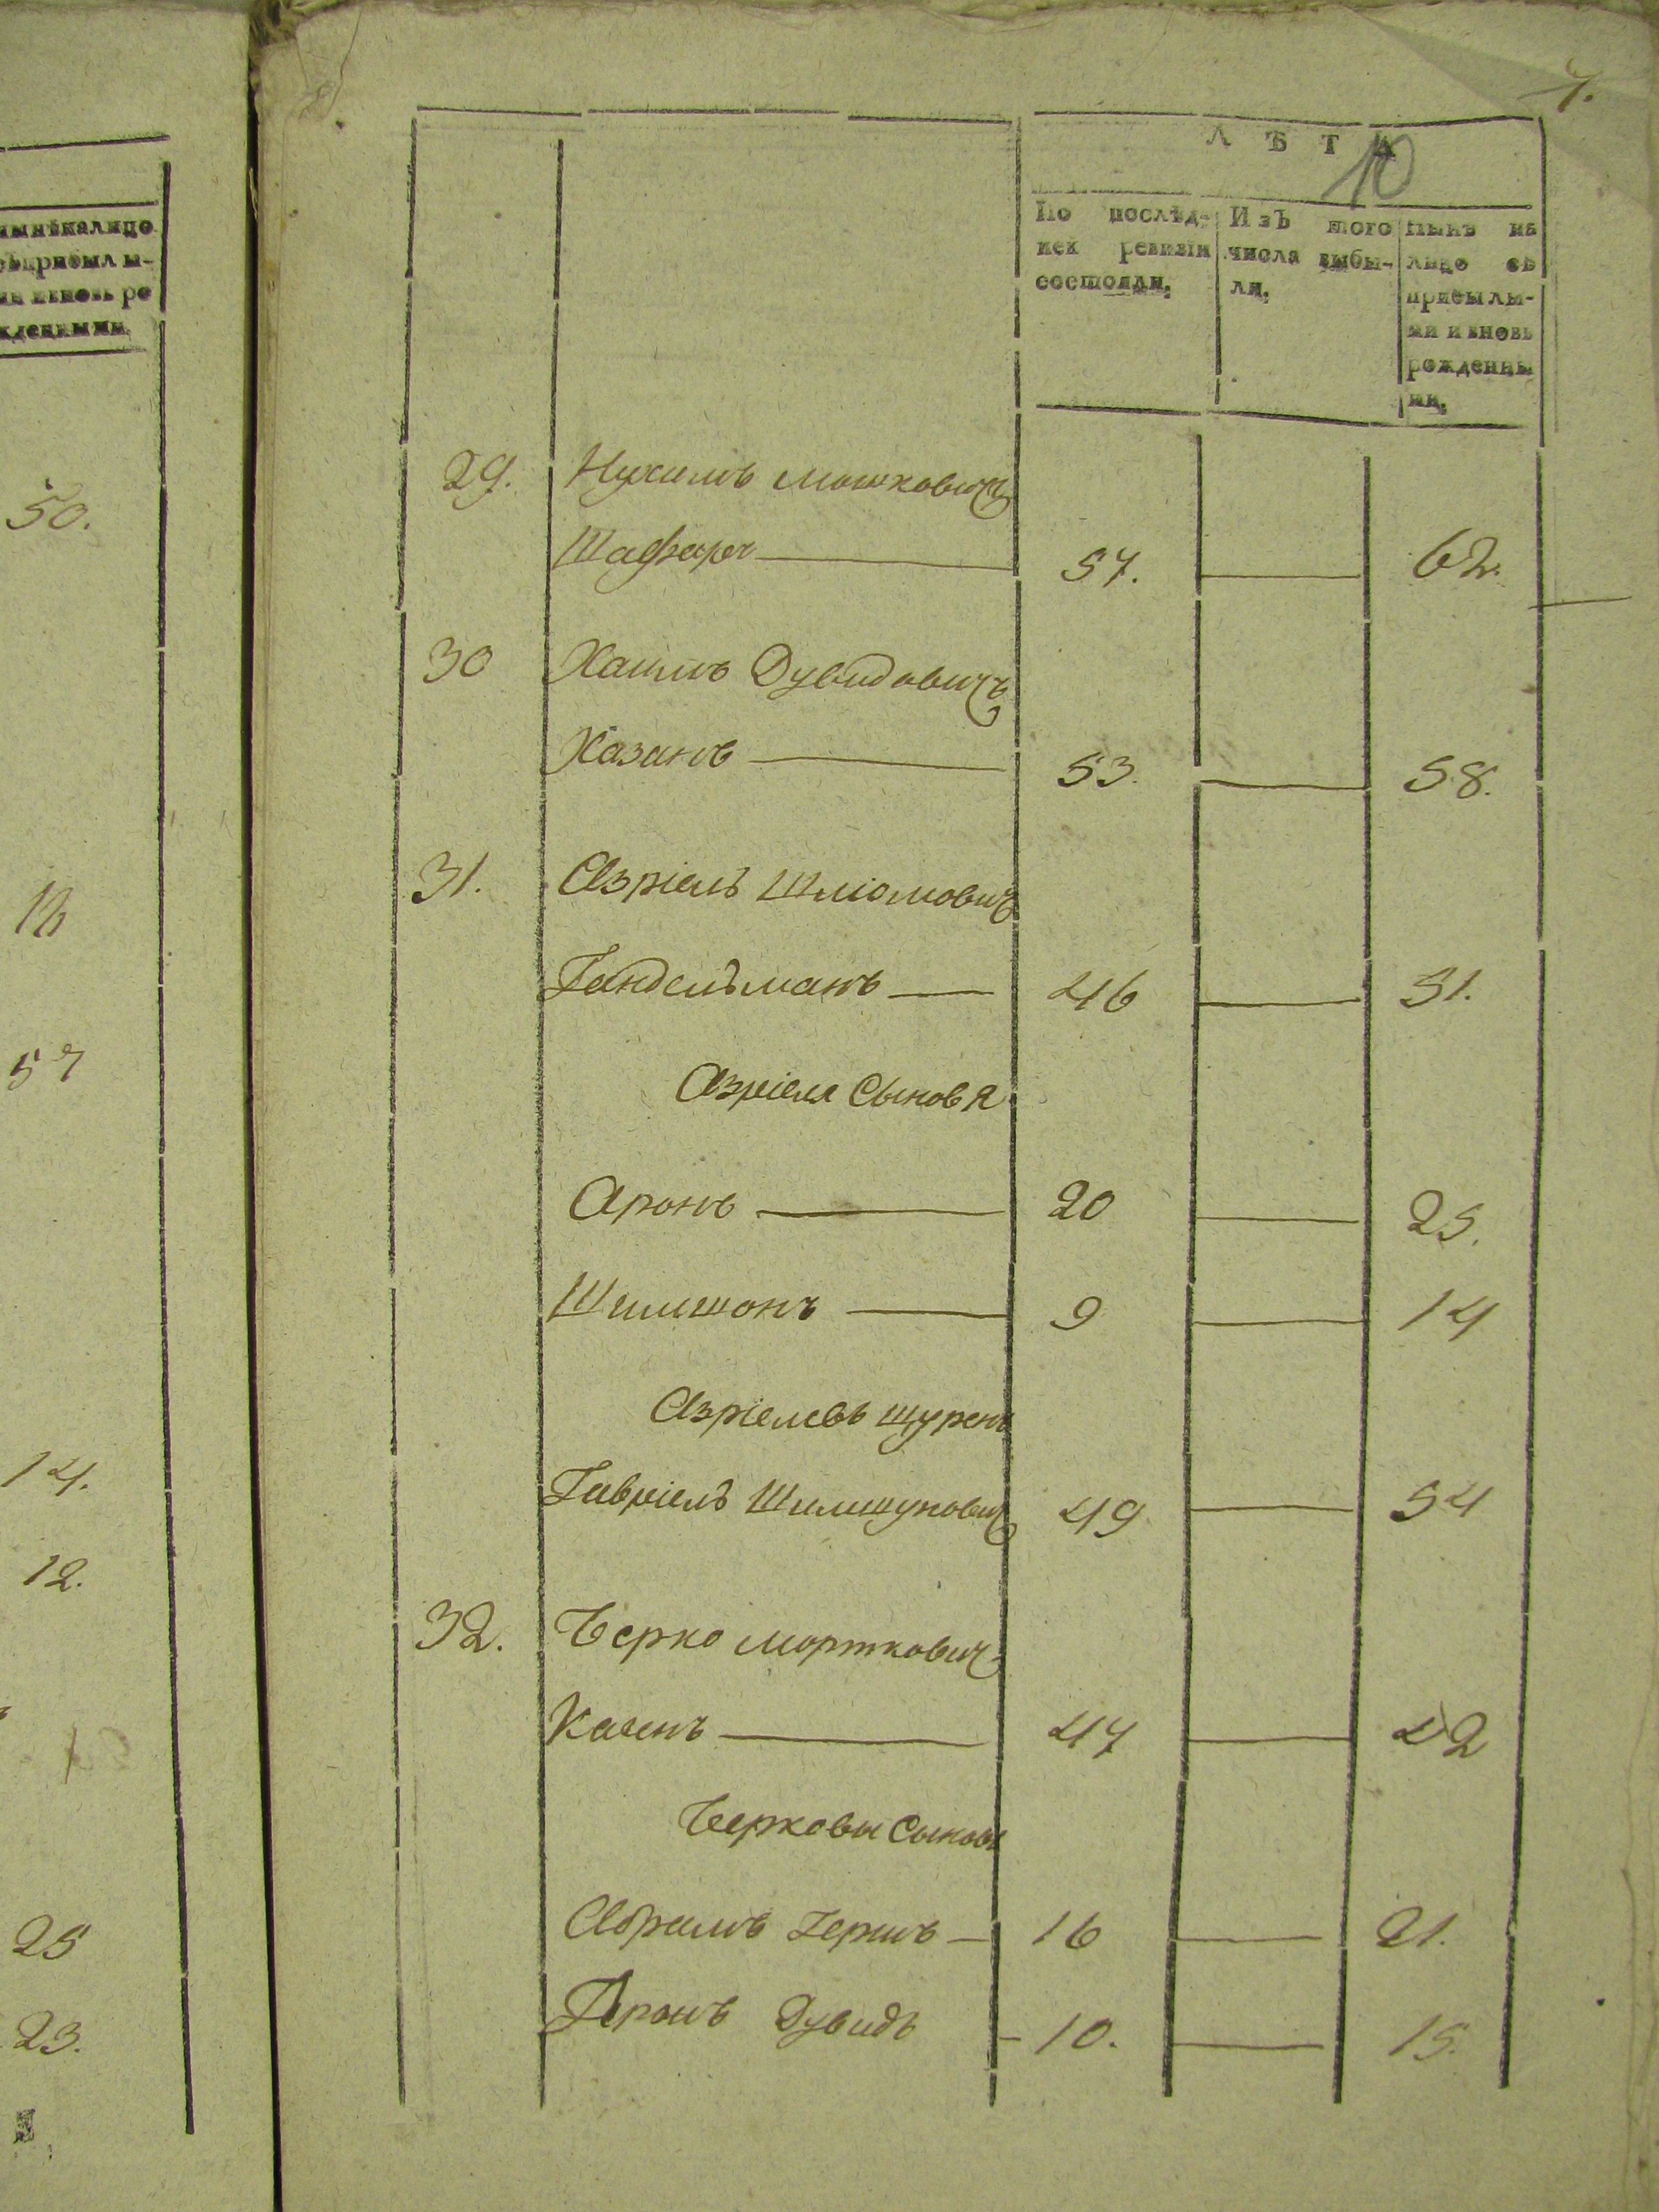 нынѣналицо
съприбылы-
ми ивновь ро
жденными
50.
57
14.
12.
25
23.
7.
ЛѢТА
10
По послѣд-
ней ревизіи
состояли,
ИзЪ того
числа выбы-
ли,
Нынѣ на
лицо съ
прибылы-
ми и вновь
рожденны
ми,
29. Нухимъ Мошковичъ
Шафаръ 57. 62.
30 Хаимъ Дувидовичъ
Хазанъ 53. 58.
31. Азріель Шліомовичъ
Гандельманъ 46 51.
Азріеля Сыновя
Аронъ 20 25.
Шимшонъ 9 14
Азріелевъ шуренъ
Гавріелъ Шимшуновичъ 49 54
32. Берко Мортковичъ
Каганъ 47 42
Берковы Сыновя
Абрамъ Гершъ 16 21.
Аронъ Дувидъ 10. 15.